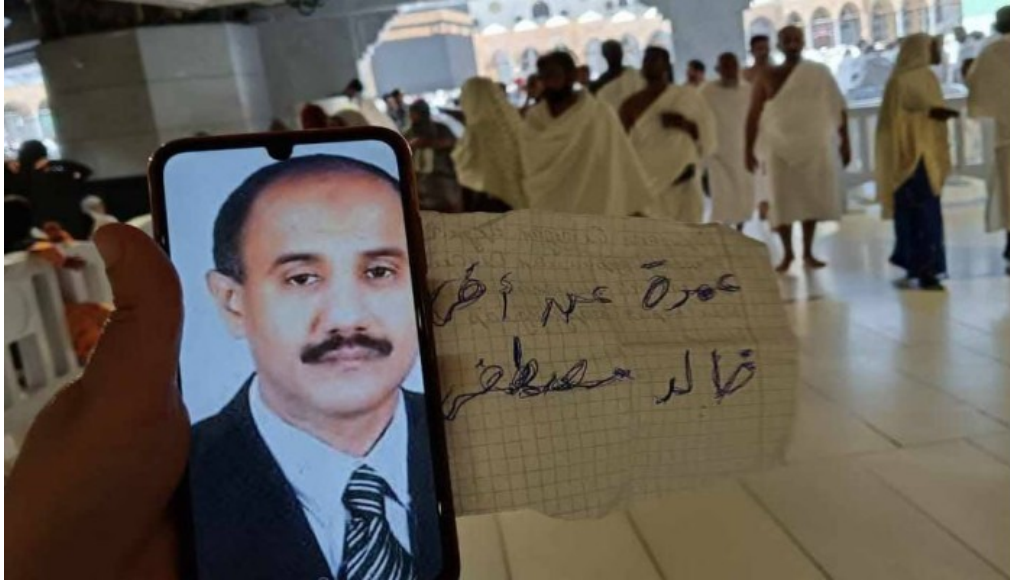 عمرة عن أخي
خالد مصطفى